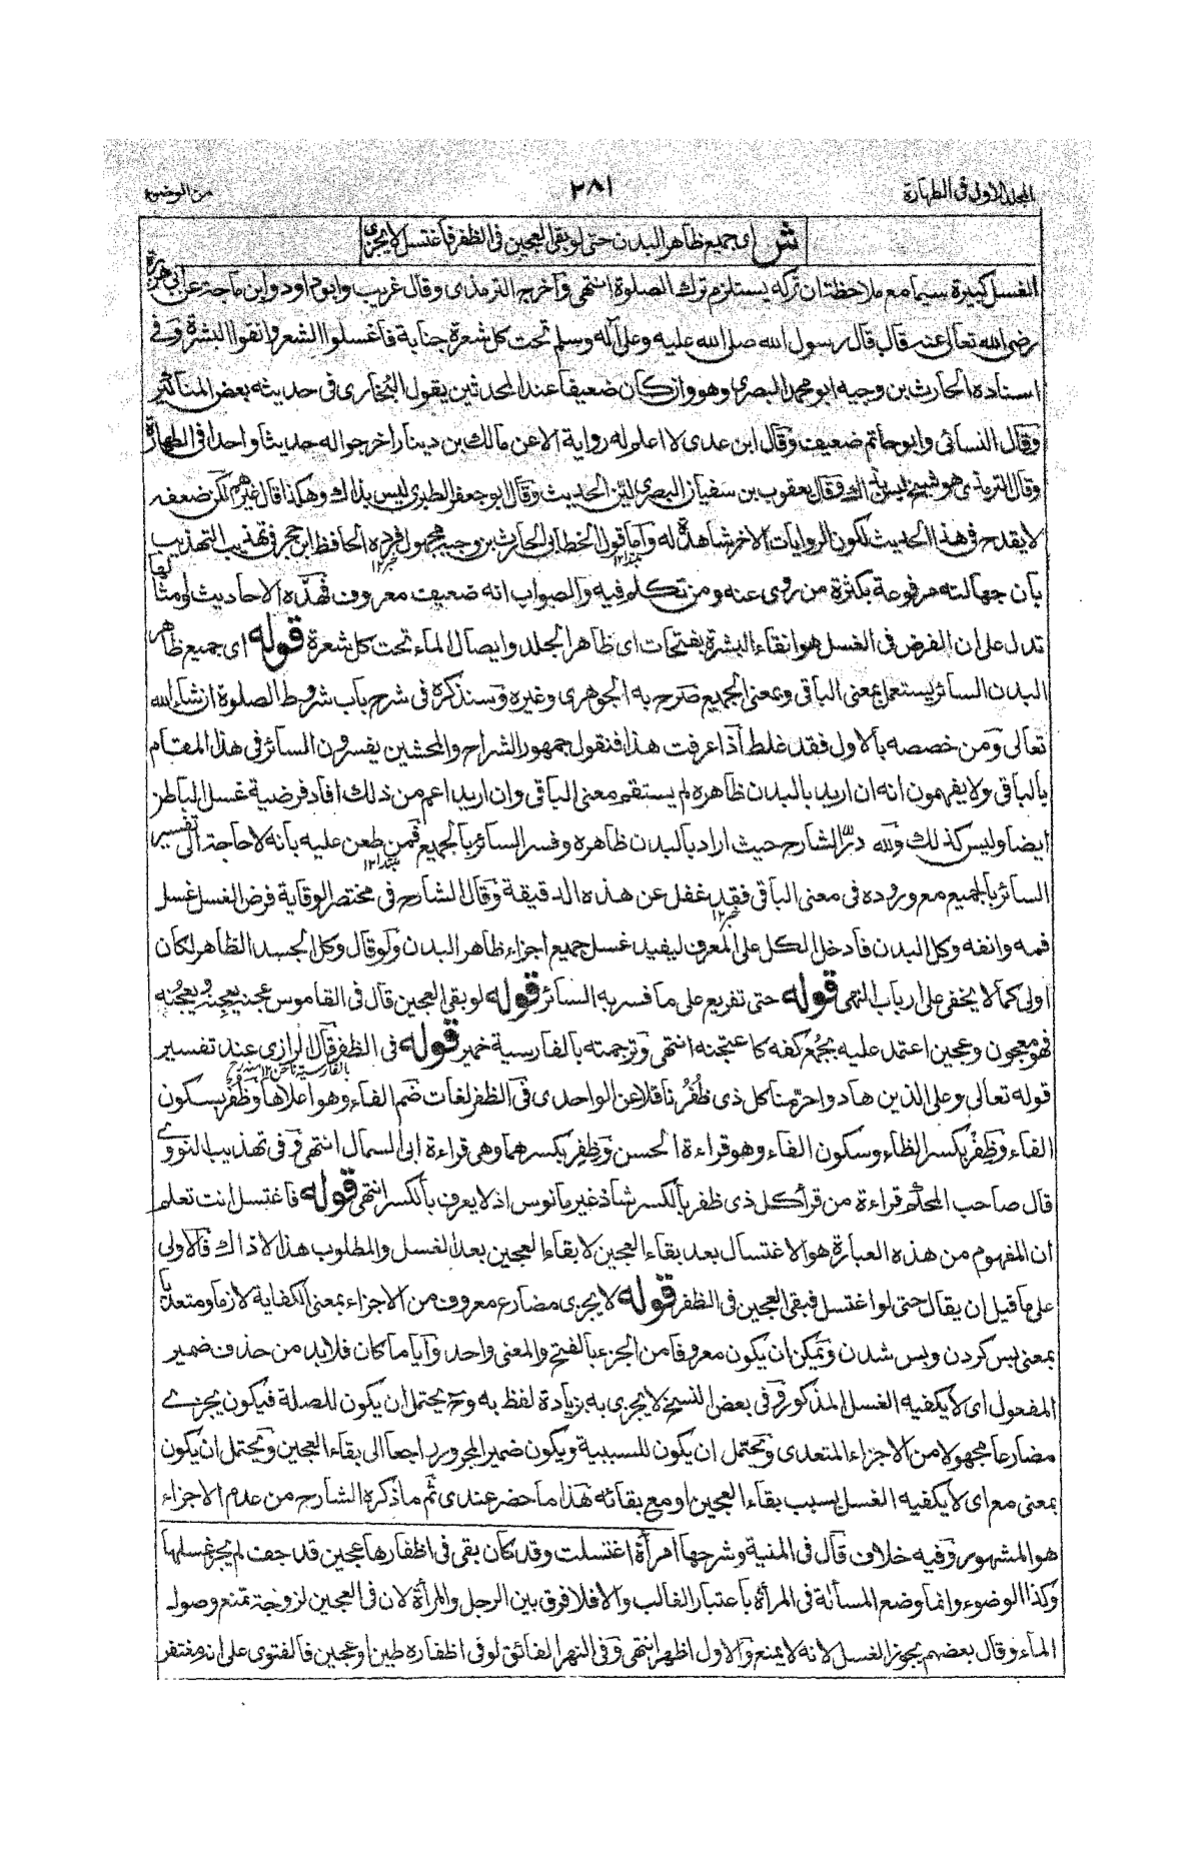 المجلد الاول فى الطهارة
٢٨١
من الوضوء
ش اى جميع ظاهر البدن حتى لو بقى العجين فى الظفر فاغتسل لا يجزى
الغسل كبيرة سيما مع ملاحظة ان تركه يستلزم ترك الصلوة انتهى وآخرج الترمذى وقال غريب وابوداود وابن ماجة عن ابى هريرة
رضى الله تعالى عنه قال قال رسول الله صلى الله عليه وعلى آله وسلم تحت كل شعرة جنابة فاغسلوا الشعر وانقوا البشرة وفى
اسناده الحارث بن وجيه ابو محمد البصرى وهو وان كان ضعيفا عند المحدثين يقول البخارى فى حديثه بعض المناكير
وقال النسائى وابوحاتم ضعيف وقال ابن عدى لا اعلم له رواية الا عن مالك بن دينار اخرجوا له حديثا واحدا فى الطهارة
وقال الترمذى هو شيخ ليس بذاك وقال يعقوب بن سفيان البصرى لين الحديث وقال ابوجعفر الطبرى ليس بذاك وهكذا قال غيرهم لكن ضعفه
لا يقدح فى هذا الحديث لكون الروايات الاخر شاهدة له وآما قول الخطابى الحارث بن وجيه مجهول فرده الحافظ ابن حجر فى تهذيب التهذيب
بان جهالته مرفوعة بكثرة من روى عنه ومن تكلم فيه والصواب انه ضعيف معروف فهذه الاحاديث ومثالها
تدل على ان الفرض فى الغسل هو انقاء البشرة بفتحات اى ظاهر الجلد وايصال الماء تحت كل شعرة قوله اى جميع ظاهر
البدن السائر يستعمل بمعنى الباقى وبمعنى الجميع صرح به الجوهرى وغيره وسنذكره فى شرح باب شروط الصلوة ان شاء الله
تعالى ومن خصصه بالاول فقد غلط آذا عرفت هذا فنقول جمهور الشراح والمحشين يفسرون السائر فى هذا المقام
بالباقى ولا يفهمون انه ان اريد بالبدن ظاهره لم يستقم معنى الباقى وان اريد اعم من ذلك افاد فرضية غسل الباطن
ايضا وليس كذلك ولله در الشارح حيث اراد بالبدن ظاهره وفسر السائر بالجميع فمن طعن عليه بانه لا حاجة الى تفسير
السائر بالجميع مع وروده فى معنى الباقى فقد غفل عن هذه الدقيقة وقال الشارح فى مختصر الوقاية فرض الغسل غسل
فمه وانفه وكل البدن فادخل الكل على المعرف ليفيد غسل جميع اجزاء ظاهر البدن ولو قال وكل الجسد الظاهر لكان
اولى كما لا يخفى على ارباب النهى قوله حتى تفريع على ما فسر به السائر قوله لو بقى العجين قال فى القاموس عجنه يعجنه ويعجنه
فهو معجون وعجين اعتمد عليه بجمع كفه كاعتجنه انتهى وترجمته بالفارسية خمير قوله فى الظفر قال الرازى عند تفسير
قوله تعالى وعلى الذين هادوا حرمنا كل ذى ظفر ناقلا عن الواحدى فى الظفر لغات ضم الفاء وهو اعلاها وظفر بسكون
الفاء وظفر بكسر الظاء وسكون الفاء وهو قراءة الحسن وظفر بكسرهما وهى قراءة ابى السمال انتهى وفى تهذيب النووى
قال صاحب المحكم قراءة من قرأ كل ذى ظفر بالكسر شاذ غير مانوس اذ لا يعرف بالكسر انتهى قوله فاغتسل انت تعلم
ان المفهوم من هذه العبارة هو الاغتسال بعد بقاء العجين لا بقاء العجين بعد الغسل والمطلوب هذا لا ذاك فالاولى
على ما قيل ان يقال حتى لو اغتسل فبقى العجين فى الظفر قوله لا يجزى مضارع معروف من الاجزاء بمعنى الكفاية لازما ومتعديا
بمعنى بس كردن وبس شدن ويمكن ان يكون معروفا من الجزء بالفتح والمعنى واحد وآيا ما كان فلابد من حذف ضمير
المفعول اى لا يكفيه الغسل المذكور وفى بعض النسخ لا يجزى به بزيادة لفظ به وح يحتمل ان يكون للصلة فيكون يجزى
مضارعا مجهولا من الاجزاء المتعدى ويحتمل ان يكون للسببية ويكون ضمير المجرور راجعا الى بقاء العجين ويحتمل ان يكون
بمعنى مع اى لا يكفيه الغسل بسبب بقاء العجين او مع بقائه هذا ما حضر عندى ثم ما ذكره الشارح من عدم الاجزاء
هو المشهور وفيه خلاف قال فى المنية وشرحها امرأة اغتسلت وقد كان بقى فى اظفارها عجين قد جف لم يجز غسلها
وكذا الوضوء وانما وضع المسألة فى المرأة باعتبار الغالب والا فلا فرق بين الرجل والمرأة لان فى العجين لزوجة تمنع وصول
الماء وقال بعضهم يجوز الغسل لانه لا يمنع والاول اظهر انتهى وفى النهر الفائق لو فى اظفاره طين او عجين فالفتوى على انه مغتفر